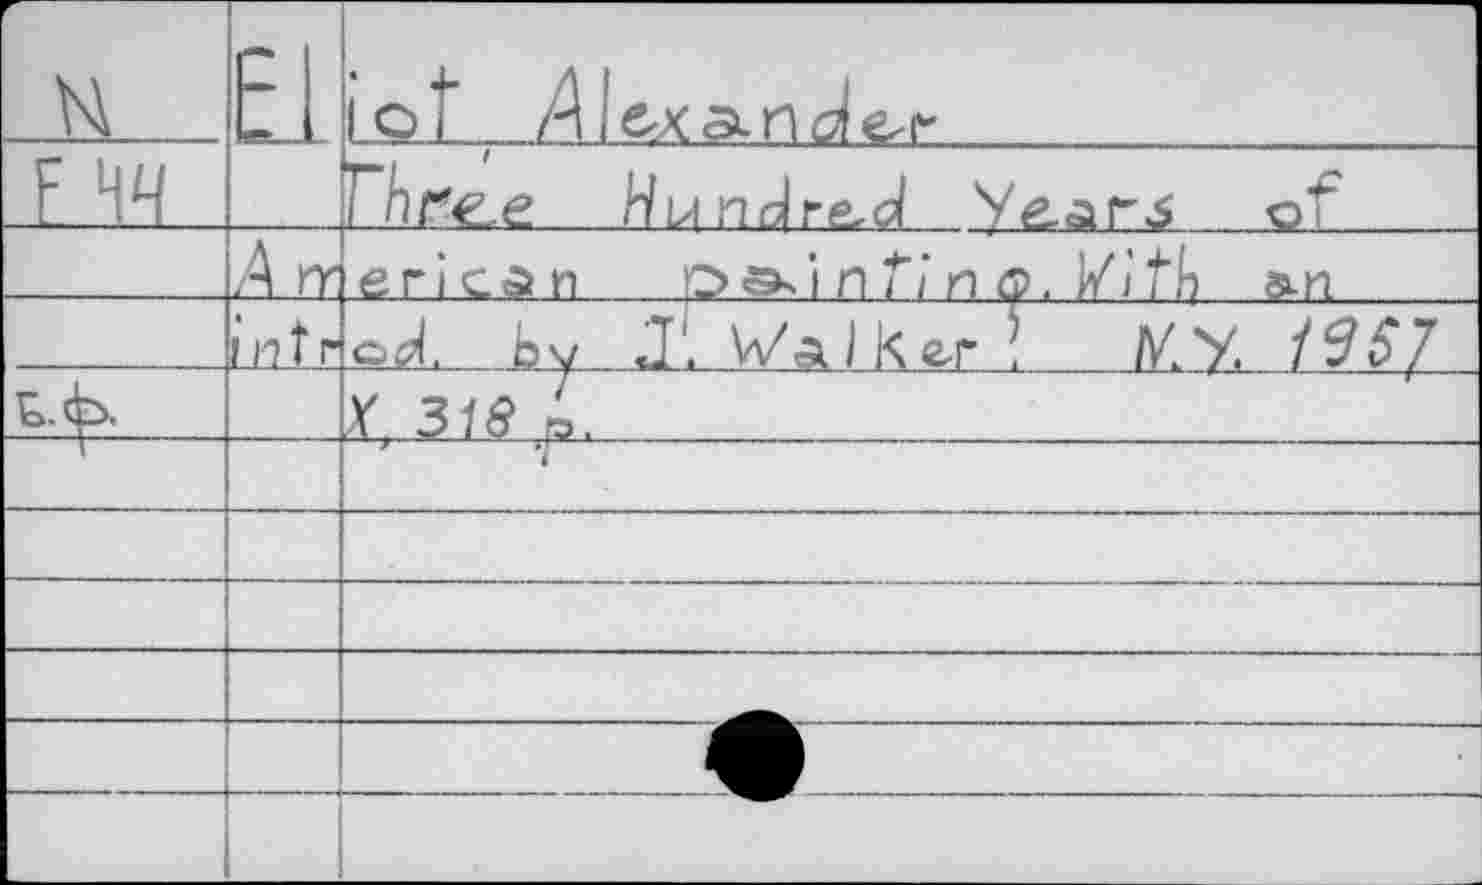 N Eliot, Alexander
E 44 Three Hundred Years of
American painting. With an
introd. by J. Walker. N.Y. 1957
Б.ф. X, 318 p.